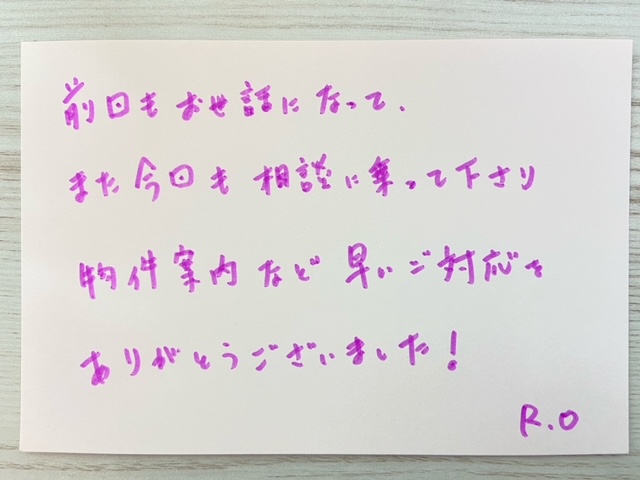 前回もお世話になって、
また今回も相談に乗って下さり
物件案内など早いご対応を
ありがとうございました!
R.O